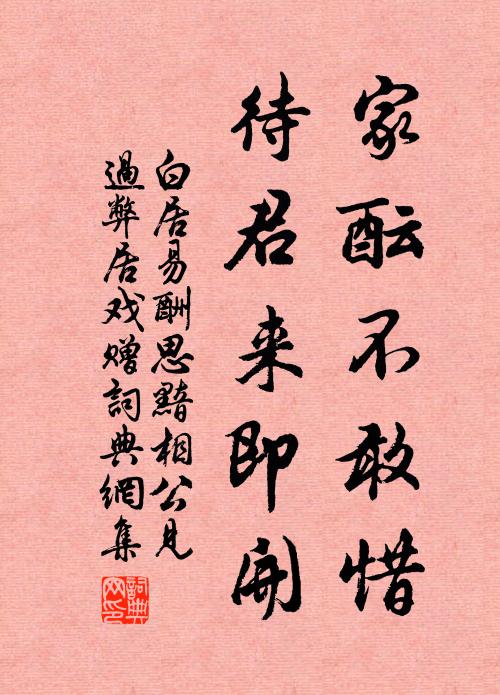 家酝不敢惜
待君来即開
白居易酬思黯相公見
過弊居戏赠詞典網集
詞典
网印